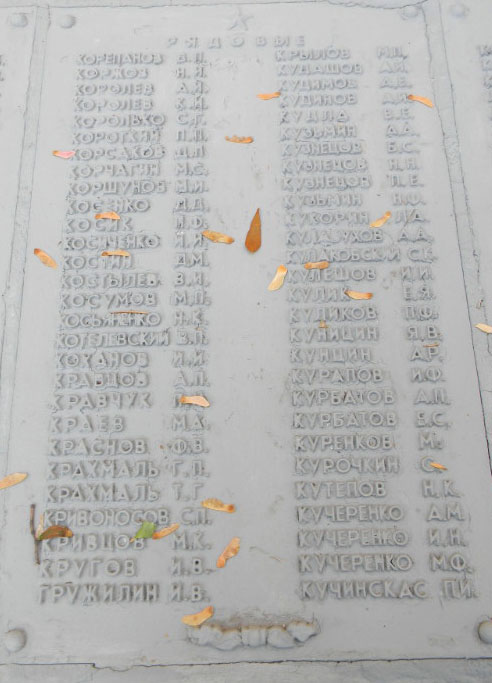 РЯДОВЫЕ
КОРЕПАНОВ В.П.
КОРЖОВ Н.Я.
КОРОЛЕВ А.Я.
КОРОЛЕВ К.И.
КОРОЛЬКО С.Г.
КОРОТКИЙ П.П.
КОРСАКОВ Д.П.
КОРЧАГИН М.С.
КОРШУНОВ И.И.
КОСЕНКО Д.Д.
КОСИК И.Ф.
КОСИЧЕНКО Я.И.
КОСТИН Д.М.
КОСТЫЛЕВ В.Я.
КОСУМОВ М.Н.
КОСЬЯНЕНКО Н.К.
КОТЕЛЕВСКИЙ В.П.
КОХАНОВ И.И.
КРАВЦОВ А.П.
КРАВЧУК
КРАЕВ М.А.
КРАСНОВ Ф.В.
КРАХМАЛЬ Г.П.
КРАХМАЛЬ Т.Г.
КРИВОНОСОВ С.П.
КРИВЦОВ М.К.
КРУГОВ И.В.
ГРУЖИЛИН И.В.
КРЫЛОВ М.П.
КУДАШОВ А.И.
КУДИМОВ А.В.
КУДИНОВ А.И.
В.Е.
КУЗЬМИН Д.А.
КУЗНЕЦОВ Б.С.
КУЗНЕЦОВ Н.Н.
КУЗНЕЦОВ П.Е.
КУЗЬМИН И.Ф.
КУКОРИН Л.Д.
А.Д.
КУЛЕШОВ И.И.
КУЛИК Е.Я.
КУЛИКОВ П.Ф.
КУНИЦИН Я.В.
КУНЦИН А.Р.
КУРАПОВ И.Ф.
КУРБАТОВ А.П.
КУРБАТОВ Б.С.
КУРЕНКОВ М.
КУРОЧКИН С.
КУТЕПОВ Н.К.
КУЧЕРЕНКО А.М.
КУЧЕРЕНКО И.Н.
КУЧЕРЕНКО М.Ф.
КУЧИНСКАС П.И.